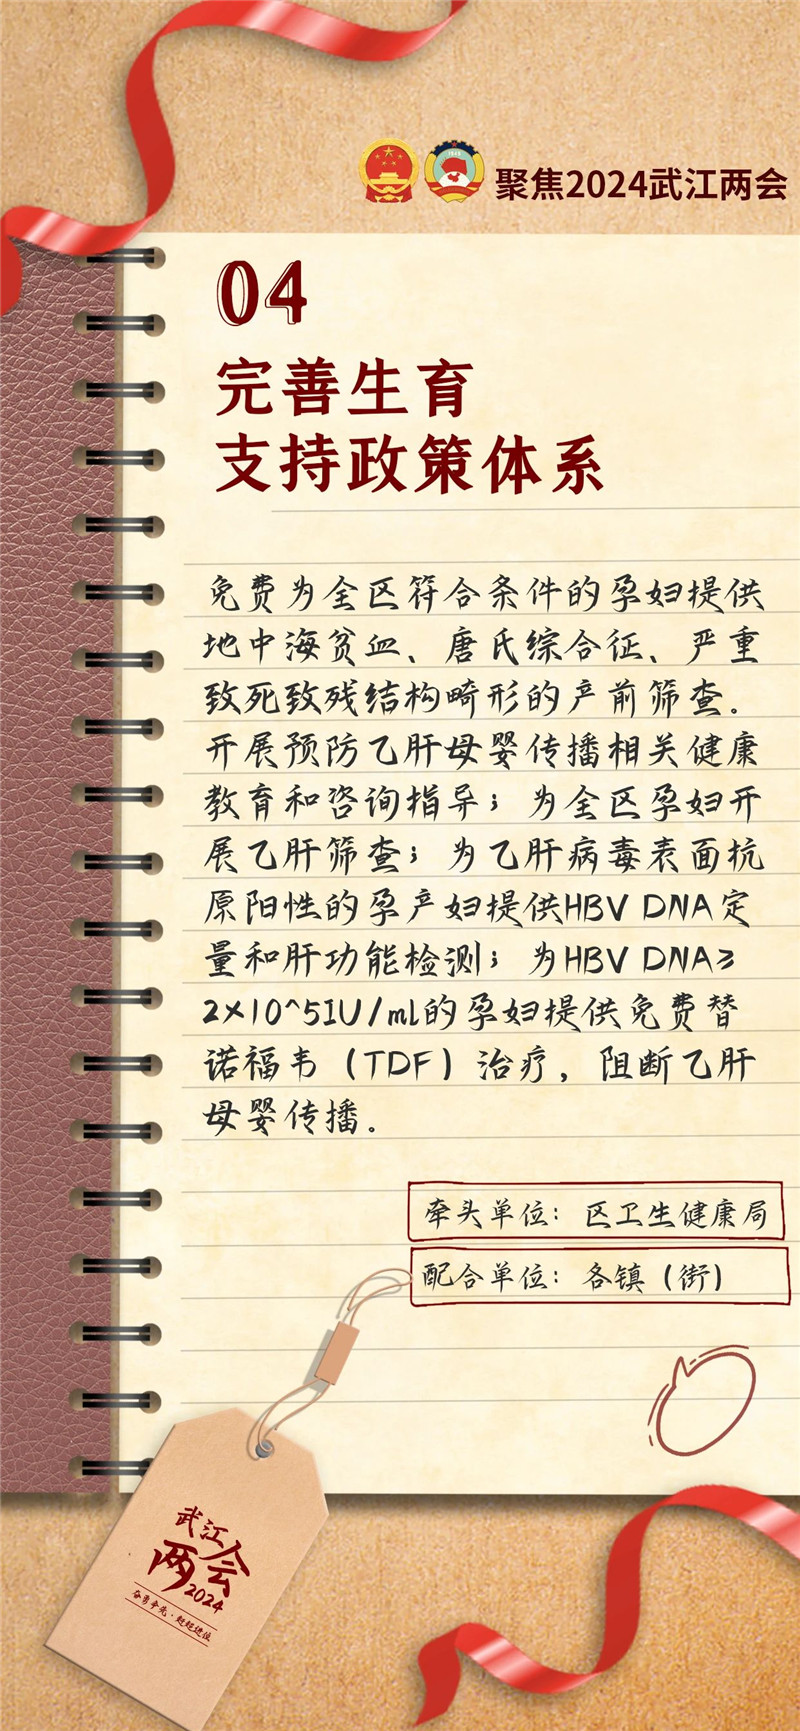 聚焦2024武江两会
04
完善生育
支持政策体系
免费为全区符合条件的孕妇提供
地中海贫血、唐氏综合征、严重
致死致残结构畸形的产前筛查.
开展预防乙肝母婴传播相关健康
教育和咨询指导；为全区孕妇开
展乙肝筛查；为乙肝病毒表面抗
原阳性的孕产妇提供HBV DNA定
量和肝功能检测；为HBV DNA≥
2×10^5IU/ml的孕妇提供免费替
诺福韦（TDF）治疗，阻断乙肝
母婴传播.
牵头单位：区卫生健康局
配合单位：各镇（街）
武江
两会
2024
奋勇争先·赶超进位